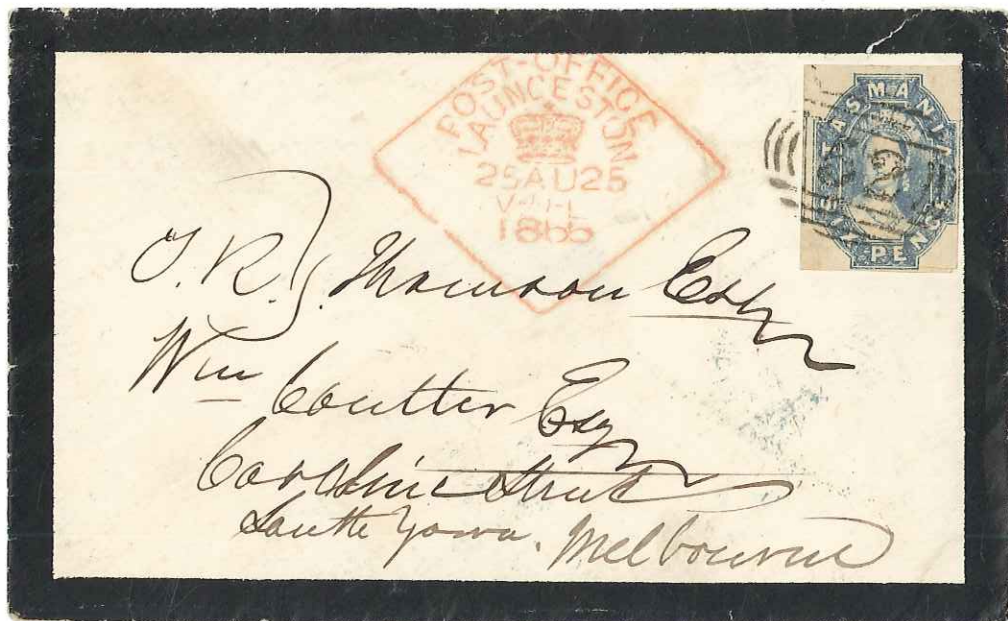 POST-OFFICE
LAUNCESTON
25 AU 25
1865
TASMANIA
SIX PENCE
T. R. Thomson Esq
Wm Coutter Esq
Caroline Street
South Yarra. Melbourne